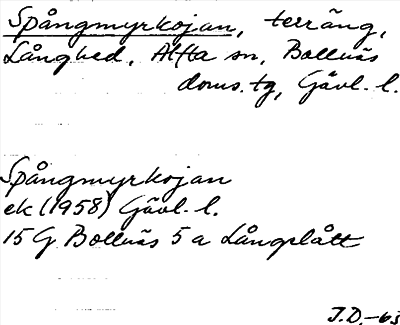 Spångmyrkojan, terräng,
Långhed, Alfta sn, Bollnäs
doms.tg, Gävl. l.
Spångmyrkojan
ek (1958) Gävl. l.
15 G Bollnäs 5 a Långslått
J.D.-63